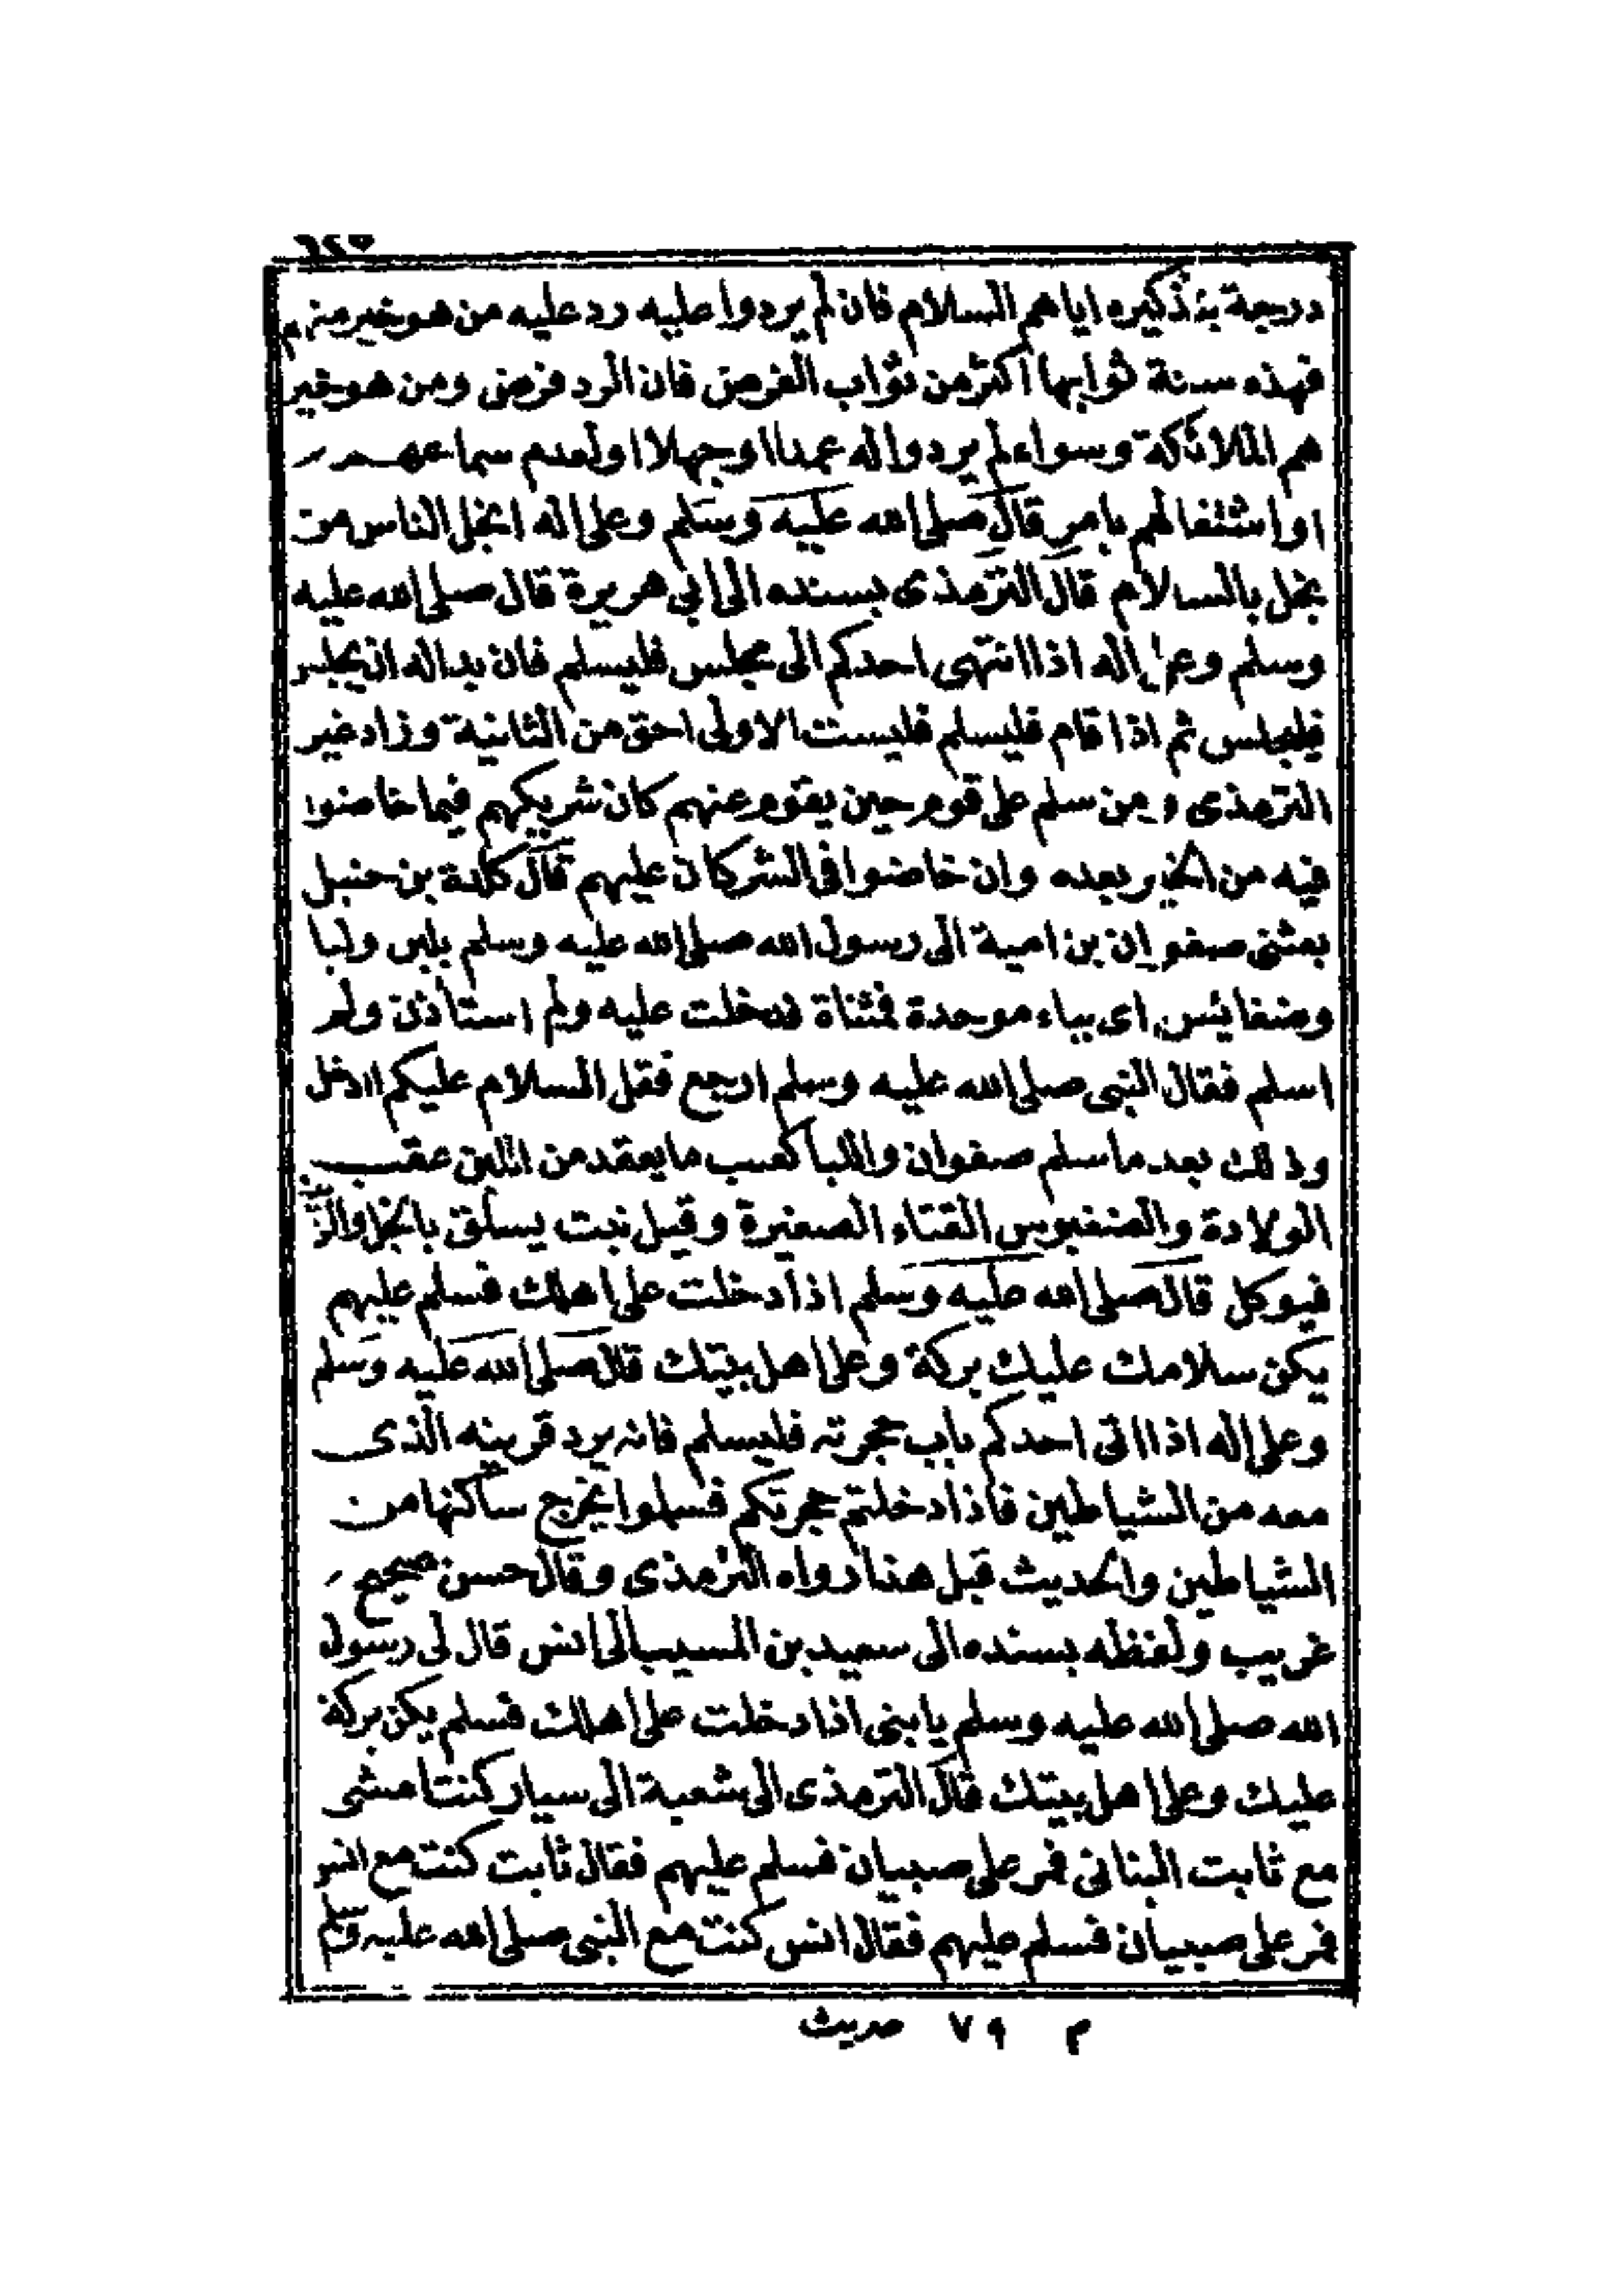 درجة بتذكيره اياهم السلام فان لم يردوا عليه رد عليه من هو خير منهم
فهذه سنة ثوابها اكثر من ثواب الفرض فان الرد فرض ومن هو خير
هم الملائكة وسواء لم يردوا له عمدا او جهلا او لعدم سماعهم
او اشتغالهم بامر قال صلى الله عليه وسلم وعلى اله ابخل الناس من
بخل بالسلام قال الترمذى بسنده الى ابى هريرة قال صلى الله عليه
وسلم وعلى اله اذا انتهى احدكم الى مجلس فليسلم فان بدا له ان يجلس
فليجلس ثم اذا قام فليسلم فليست الاولى احق من الثانية وزاد غير
الترمذى ومن سلم على قوم حين يقوم عنهم كان شريكهم فيما خاضوا
فيه من الخير بعده وان خاضوا فى الشر كان عليهم قال كلدة بن حنبل
بعثنى صفوان بن امية الى رسول الله صلى الله عليه وسلم بلبن ولبا
وضغابيس اى بباء موحدة فمثناة فدخلت عليه ولم استأذن ولم
اسلم فقال النبى صلى الله عليه وسلم ارجع فقل السلام عليكم اادخل
وذلك بعد ما سلم صفوان واللبأ كعب ما يعقد من اللبن عقب
الولادة والضغبوس القثاء الصغيرة وقيل نبت يسلق بالخل والزيت
فيوكل قال صلى الله عليه وسلم اذا دخلت على اهلك فسلم عليهم
يكن سلامك عليك بركة وعلى اهل بيتك قال صلى الله عليه وسلم
وعلى اله اذا اتى احدكم باب حجرته فليسلم فانه يرد قرينه الذى
معه من الشياطين فاذا دخلتم حجرتكم فسلموا يخرج ساكنها من
الشياطين والحديث قبل هذا رواه الترمذى وقال حسن صحيح
غريب ولفظه بسنده الى سعيد بن المسيب الى انس قال لى رسول
الله صلى الله عليه وسلم يا بنى اذا دخلت على اهلك فسلم يكن بركة
عليك وعلى اهل بيتك قال الترمذى الى شعبة الى سيار كنت امشى
مع ثابت البنانى فمر على صبيان فسلم عليهم فقال ثابت كنت مع انس
فمر على صبيان فسلم عليهم فقال انس كنت مع النبى صلى الله عليه وسلم
م ٧٩ حديث